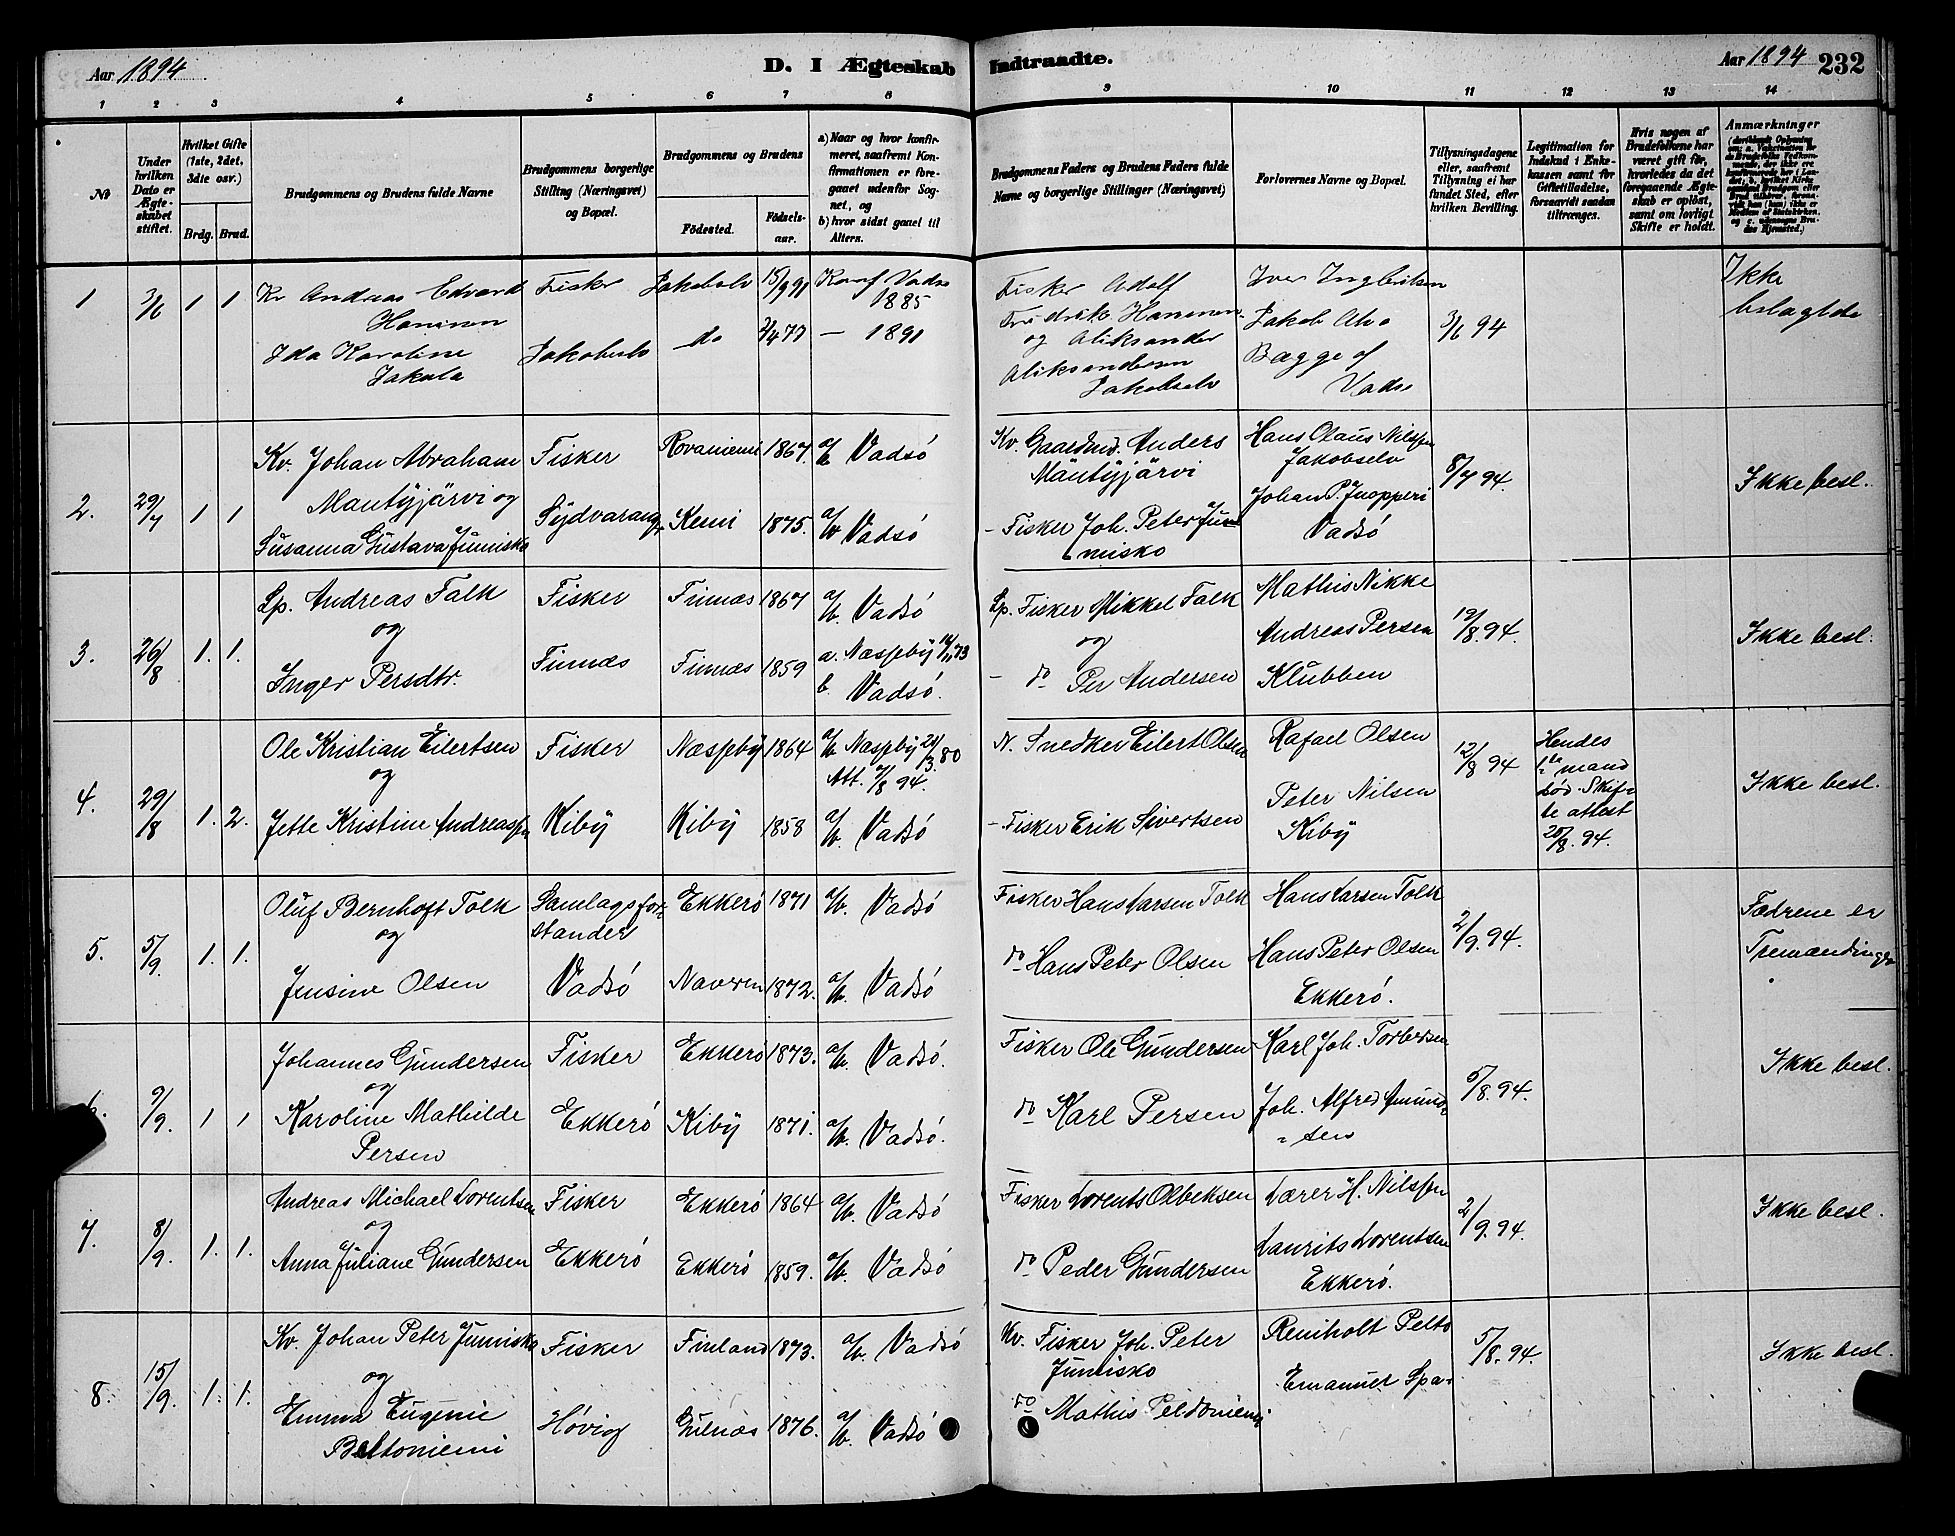 Aar 1894
D. I Ægteskab Indtraadte.
Aar 1894 232
1 2 3 4 5 6 7 8 9 10 11 12 13 14
No
Under hvilken Dato er Ægteskabet stiftet.
Hvilket Gifte (1ste, 2det, 3die osv.)
Brdg. Brud.
Brudgommens og Brudens fulde Navne
Brudgommens borgerlige Stilling (Næringsvei) og Bopæl.
Brudgommens og Brudens
Födested.
Födsels-aar.
a) Naar og hvor konfirmeret, saafremt Konfirmationen er foregaaet udenfor Sognet, og
b) hvor sidst gaaet til Alters.
Brudgommens Faders og Brudens Faders fulde Navne og borgerlige Stillinger (Næringsvei)
Forlovernes Navne og Bopæl.
Tillysningsdagene eller, saafremt Tillysning ei har fundet Sted, efter hvilken Bevilling.
Legitimation for Indskud i Enkekassen samt for Giftetilladelse, forsaavidt saadan tiltrænges.
Hvis nogen af Brudefolkene har været gift för, hvorledes da det foregaaende Ægteskab er oplöst, samt om lovligt Skifte er holdt.
Anmærkninger
1 3/6 1 1
Andreas Edvard
Ida Karoline
Jakola
Fisker
Konf Vadsø
1885
— 1891
do
Fisker Adolf
og Aliksander
Jakobselv
Bægge af
Vadsø
3/6 94
Ikke
beslagtede
2. 29/7 1 1
Kv. Johan Abraham
Mantyjärvi og
Susanna Gustava Junnisko
Fisker
Sydvaranger
Rovaniemi 1867. a/b Vadsö
Kemi 1875. a/b Vadsö
Kv. Gaardmd. Anders
Mäntyjärvi
- Fisker Joh. Peter Jun
misko
Hans Olaus Nilssen
Jakobselv
Johan P.
Vadsö
8/7 94.
Ikke besl.
3. 26/8 1. 1.
Lp. Andreas Falk
og
Inger Persdtr.
Fisker
Finnæs
Finnæs 1867 a/b Vadsö
Finnæs 1859 a. Næsseby 73
b. Vadsö.
Lp. Fisker Mikkel Falk
og
- do Per Andersen
Mathis Nikke
Andreas Persen
Klubben
19/8.94.
Ikke besl.
4. 29/8 1. 2.
Ole Kristian Eilertsen
og
Jette Kristine Andreassen
Fisker
Kiby
Næsseby 1864 a/b Næsseby 21/3.80
Att. 7/8 94.
Kiby 1858 a/b Vadsö
N. Snedker Eilert Olsen
- Fisker Erik Sivertsen
Rafael Olsen
Peter Nilsen
Kiby
12/8 94
Hendes
mand
död. Skif-
te attest
25/8.94.
Ikke besl.
5. 5/9. 1. 1.
Oluf Bernhoft Tolk
og
Jensine Olsen
Samlagsfor-
stander
Vadsö
Ekkerö 1871 a/b. Vadsö
1872. a/b. Vadsö
Fisker Hans Larsen Tolk
do Hans Peter Olsen
Hans Larsen Tolk
Hans Peter Olsen
Ekkerö.
2/9.94.
Fædrene er
Tremændinger
9/9. 1 1
Johannes Gundersen
og
Karoline Mathilde
Persen
Fisker
Ekkerö
Ekkerö 1873. a/b. Vadsö.
Kiby 1871. a/b. Vadsö.
Fisker Ole Gundersen
do Karl Persen
Karl Joh. Torbersen
Joh. Alfred Amund-
sen
5/8.94.
Ikke besl.
7. 8/9. 1. 1.
Andreas Michael Lorentsen
og
Anna Juliane Gundersen
Fisker
Ekkerö
Ekkerö 1864 a/b. Vadsö
Ekkerö 1859. a/b. Vadsö
Fisker Lorents Olbeksen
do Peder Gundersen
Lærer H. Nilssen
Laurits Lorentsen
Ekkerö.
2/9.94.
Ikke besl.
8. 15/9. 1. 1.
Kv. Johan Peter Junnisko
og
Emma Eugenie
Beltoniemi
Fisker
Høvig
Finland 1873. a/b. Vadsö
1876. a/b. Vadsö
Kv. Fisker Joh. Peter
Junnisko
do Mathis Peldoniemi
Reinholt Pelto
Emanuel Spa-
5/8.94.
Ikke besl.